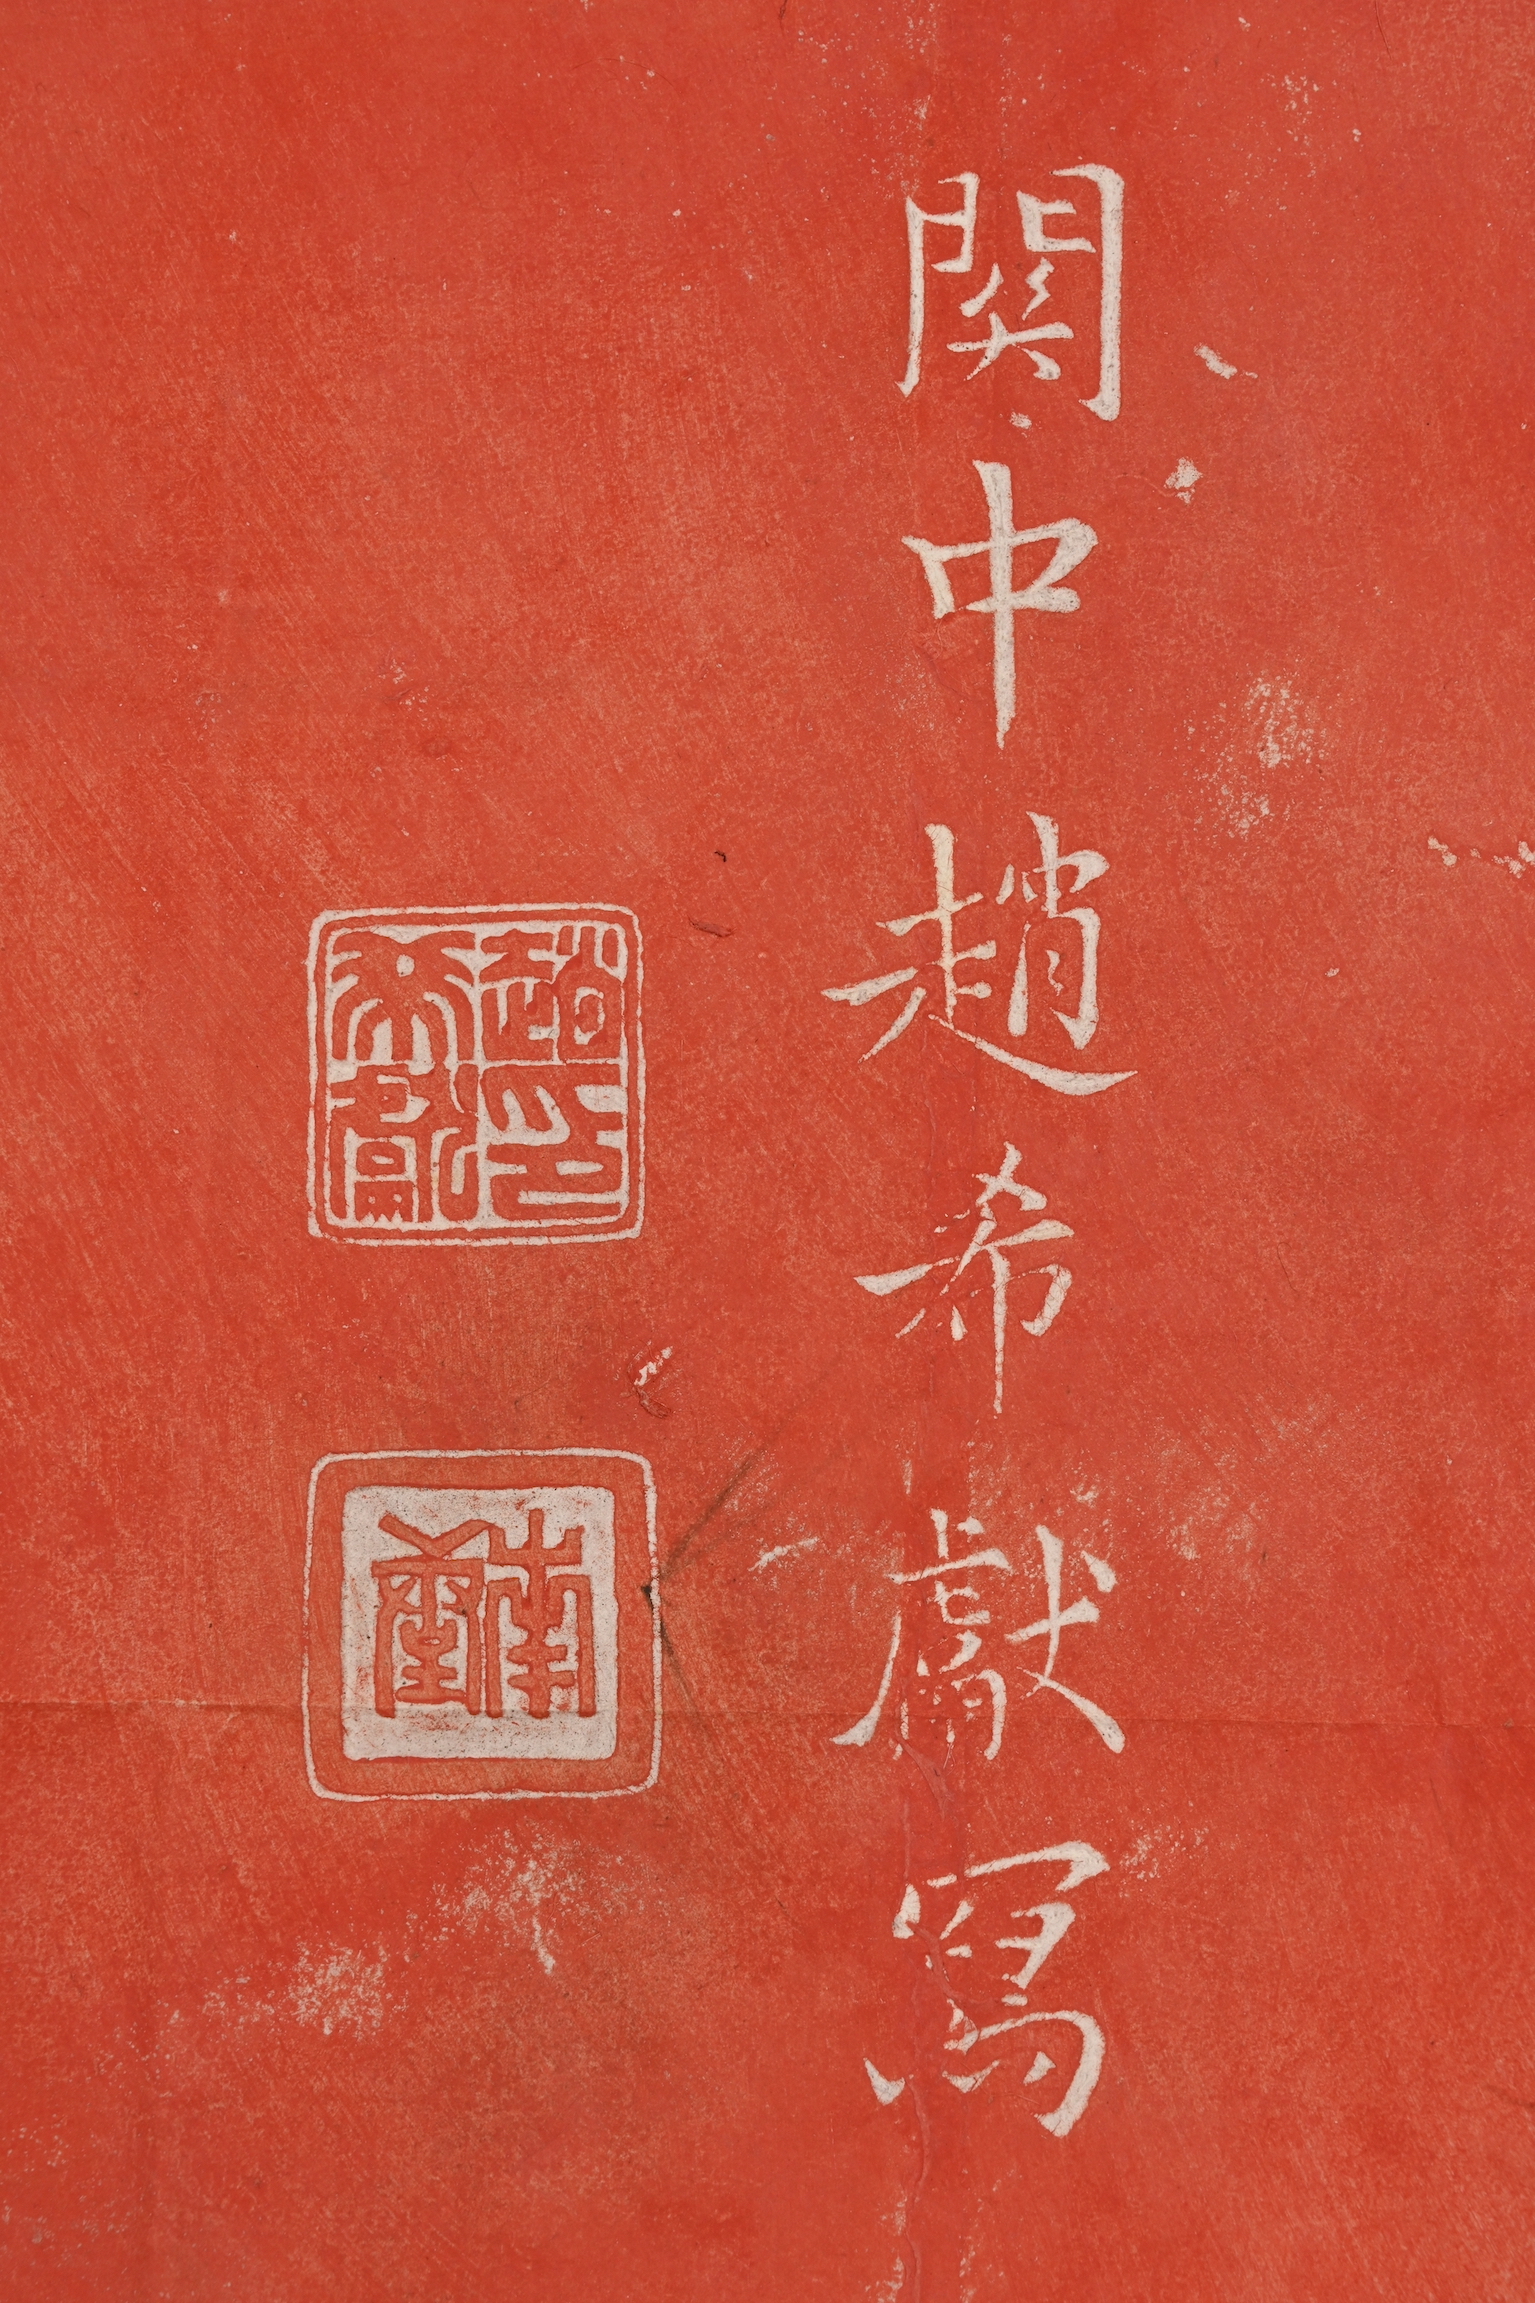 関中趙希獻寫
趙印希獻